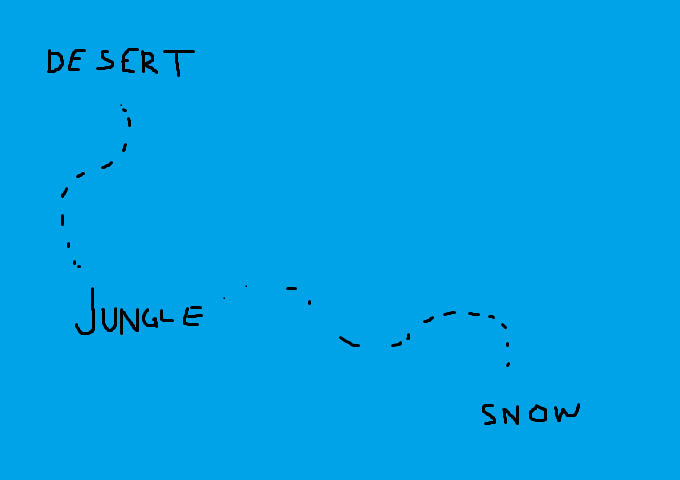 DESERT
JUNGLE
SNOW